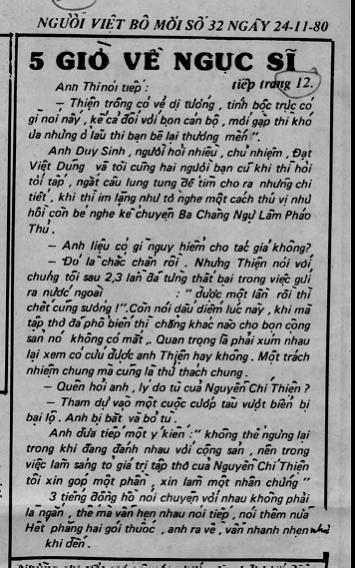 NGƯỜI VIỆT BỘ MỚI SỐ 32 NGÀY 24-11-80
5 GIỜ VỀ NGỤC SĨ
Anh Thi nói tiếp : tiếp trang 12.
— Thiện trông có vẻ dị tướng , tính bộc trực có
gì nói nấy , kể cả đối với bọn cán bộ , mới gặp thì khó
ưa nhưng ở lâu thì bạn bè lại thương mến ".
Anh Duy Sinh , người hỏi nhiều , chủ nhiệm , Đạt
Việt Dũng và tôi cùng hai người bạn cũ khi thì hỏi
tới tấp , ngắt câu lung tung để tìm cho ra những chi
tiết , khi thì im lặng như tờ nghe một cách thú vị như
hồi còn bé nghe kể chuyện Ba Chàng Ngự Lâm Pháo
Thủ .
— Anh liệu có gì nguy hiểm cho tác giả không?
— Đó là chắc chắn rồi . Nhưng Thiện nói với
chúng tôi sau 2,3 lần đã từng thất bại trong việc gửi
ra nước ngoài : " được một lần rồi thì
chết cũng sướng !". Còn nói dấu diếm lúc này , khi mà
tập thơ đã phổ biến thì chẳng khác nào cho bọn cộng
sản nó không có mắt ,. Quan trọng là phải xúm nhau
lại xem có cứu được anh Thiện hay không . Một trách
nhiệm chung mà cũng là thử thách chung .
— Quên hỏi anh , lý do tù của Nguyễn Chí Thiện ?
— Tham dự vào một cuộc cướp tàu vượt biển bị
bại lộ . Anh bị bắt và bỏ tù .
Anh đưa tiếp một ý kiến :" không thể ngừng lại
trong khi đang đánh nhau với cộng sản , nên trong
việc làm sáng tỏ giá trị tập thơ của Nguyễn Chí Thiện
tôi xin góp một phần , xin làm một nhân chứng "
3 tiếng đồng hồ nói chuyện với nhau không phải
là ngắn , thế mà vẫn hẹn nhau nói tiếp , nói thêm nữa
Hết phăng hai gói thuốc , anh ra về , vẫn nhanh nhẹn như
khi đến .